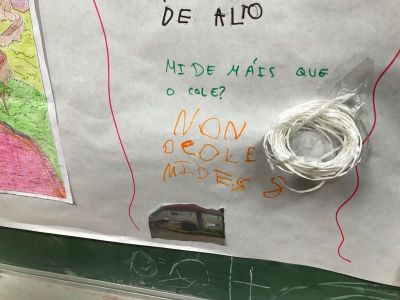 DE ALTO
MIDE MÁIS QUE
O COLE?
NON
O COLE
MIDE 8